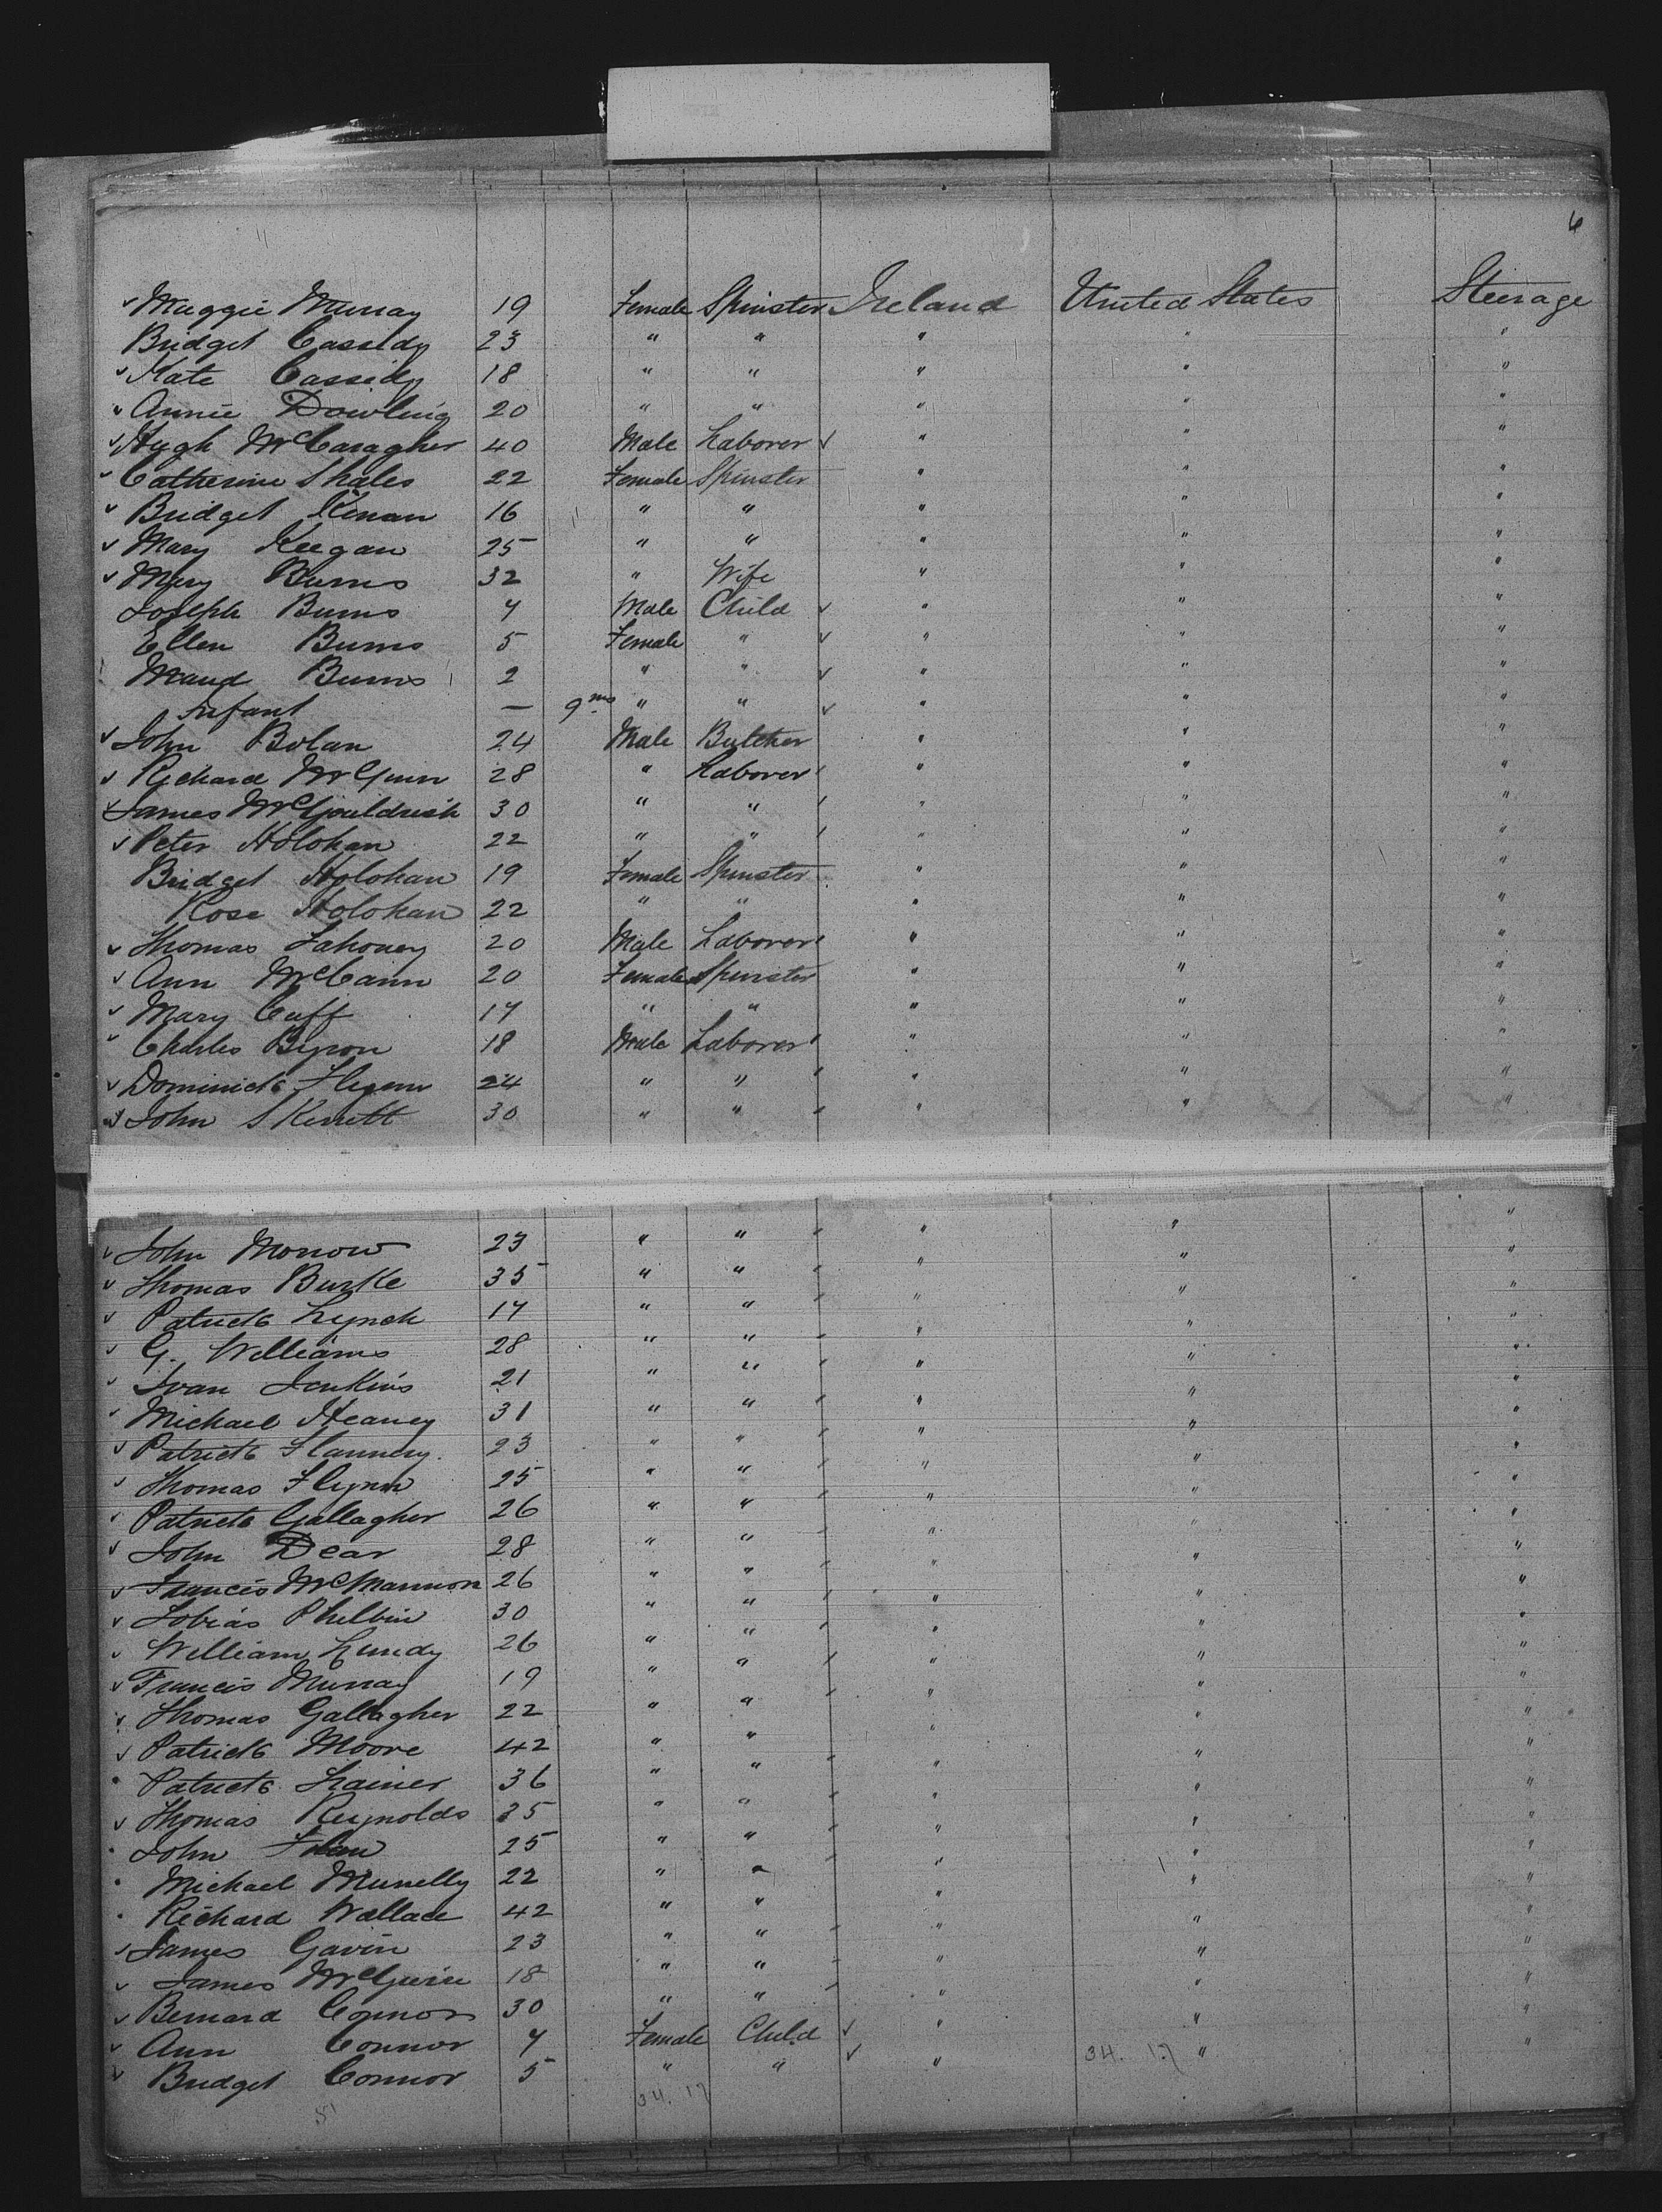 6
Maggie Murray 19 Female Spinster Ireland United States Steerage
Bridget Cassidy 23 " " " " "
Kate Cassidy 18 " " " " "
Annie Dowling 20 " " " " "
Hugh McCaragher 40 Male Laborer " " "
Catherine Shales 22 Female Spinster " " "
Bridget Kinan 16 " " " " "
Mary Keegan 25 " " " " "
Mary Burns 32 " Wife " " "
Joseph Burns 7 Male Child " " "
Ellen Burns 5 Female " " " "
Maud Burns 2 " " " " "
Infant — 9 ms " " " " "
John Bolan 24 Male Butcher " " "
Richard McGuin 28 " Laborer " " "
James McGouldrick 30 " " " " "
Peter Holohan 22 " " " " "
Bridget Holohan 19 Female Spinster " " "
Rose Holohan 22 " " " " "
Thomas Fahoney 20 Male Laborer " " "
Ann McCann 20 Female Spinster " " "
Mary Cuff 17 " " " " "
Charles Byron 18 Male Laborer " " "
Dominick Flynn 24 " " " " "
John Skerrett 30 " " " " "
John Morrow 23 " " " " "
Thomas Burke 35 " " " " "
Patrick Lynch 17 " " " " "
G. Williams 28 " " " " "
Ivan Jenkins 21 " " " " "
Michael Heaney 31 " " " " "
Patrick Flannery 23 " " " " "
Thomas Flynn 25 " " " " "
Patrick Gallagher 26 " " " " "
John Dear 28 " " " " "
Francis McMannon 26 " " " " "
Tobias Philbin 30 " " " " "
William Lundy 26 " " " " "
Francis Murray 19 " " " " "
Thomas Gallagher 22 " " " " "
Patrick Moore 42 " " " " "
Patrick Lainer 36 " " " " "
Thomas Reynolds 25 " " " " "
John 25 " " " " "
Michael Munelly 22 " " " " "
Richard Wallace 42 " " " " "
James Gavin 23 " " " " "
James McGuin 18 " " " " "
Bernard Connor 30 " " " " "
Ann Connor 7 Female Child " " "
Bridget Connor 5 " " " 34. 17 " "
51 34. 17